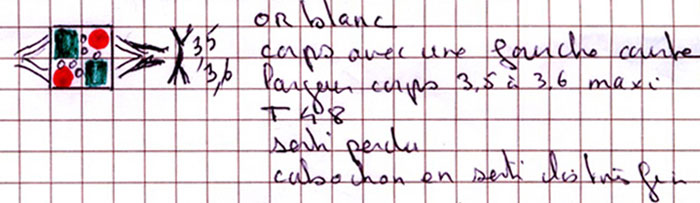 OR blanc
3,5
3,6
corps avec une gauche
largeur corps 3,5 à 3,6 maxi
T 48
serti perdu
cabochon en serti clos très fin